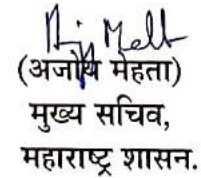 (अजोय मेहता)
मुख्य सचिव,
महाराष्ट्र शासन.